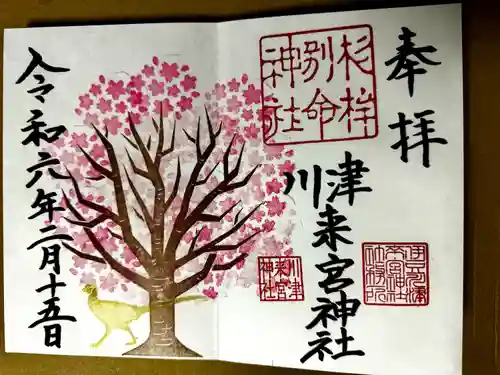 奉拝
杉桙
別命
神社
川津
来宮神社
川津
来宮
神社
令和六年二月十五日